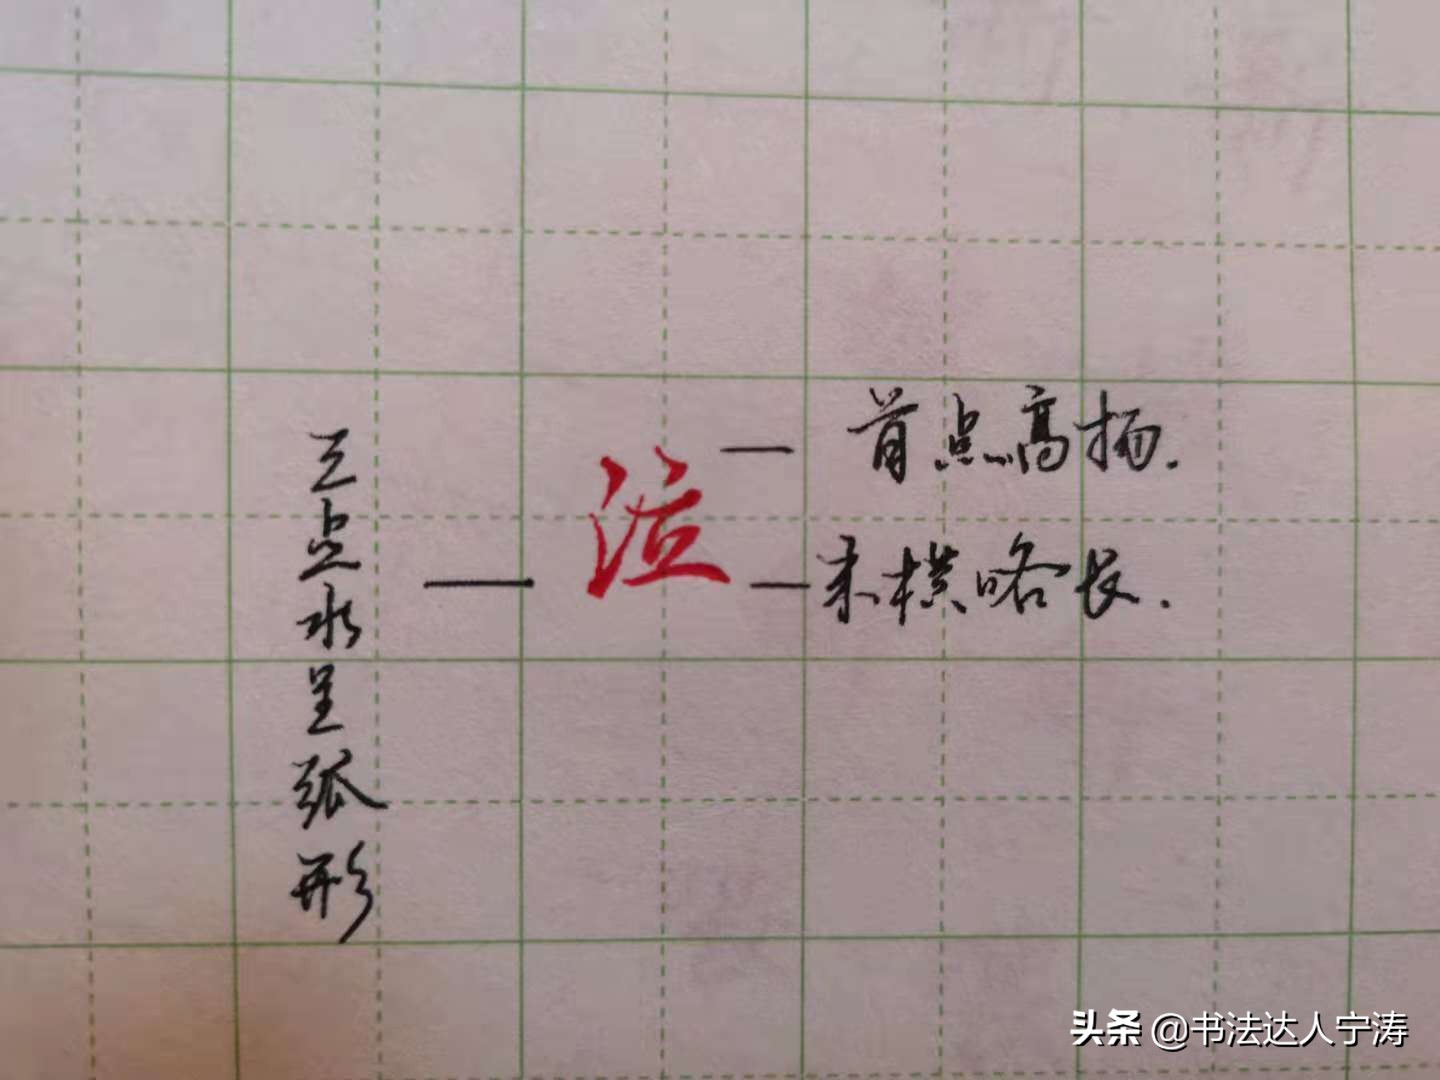 三点水呈弧形
泣
首点高扬.
末横略长.
头条 @书法达人宁涛